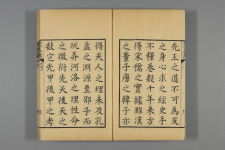 先王之道不可為反
之身心求之經史手
不釋卷數十年來方
得宋儒之實據雖漢
之董子唐之韓子亦
得天人之理未及孔
孟之淵源至邵子而
玩弄河洛之理性命
之微衍先天後天之
數定先甲後甲之考